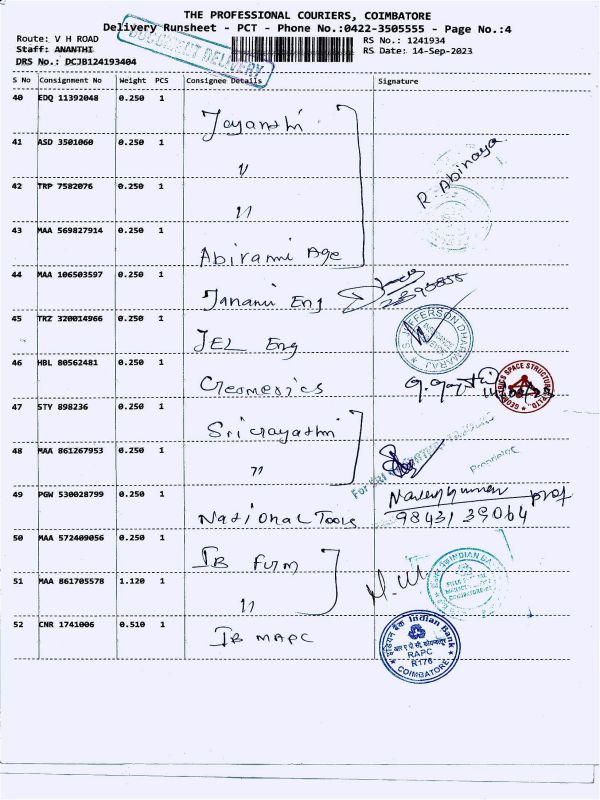 THE PROFESSIONAL COURIERS, COIMBATORE
Delivery Runsheet - PCT - Phone No.:0422-3505555 - Page No.:4
Route: V H ROAD
RS No.: 1241934
Staff: ANANTHI
RS Date: 14-Sep-2023
DRS No.: DCJB124193404
DOCUMENT DELIVERY
S No Consignment No Weight PCS Consignee Details Signature
40 EDQ 11392048 0.250 1 Jayanthi
41 ASD 3501060 0.250 1 "
R Abinaya
42 TRP 7582076 0.250 1 "
43 MAA 569827914 0.250 1 Abirami Age
44 MAA 106503597 0.250 1 Janani Eng
45 TRZ 320014966 0.250 1 JEL Eng
S. JEFFERSON DHARMARAJ
46 HBL 80562481 0.250 1 Geomedics
47 STY 898236 0.250 1
48 MAA 861267953 0.250 1 "
For SRI
Proprietor
49 PGW 530028799 0.250 1 National Tools
Naveenkumar prof
98431 39064
50 MAA 572409056 0.250 1 IB Furm
51 MAA 861705578 1.120 1 "
INDIAN
52 CNR 1741006 0.510 1 IB MAPC
इंडियन बैंक Indian Bank
RAPC
R176
COIMBATORE